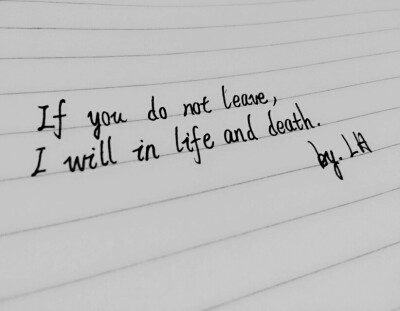 If you do not leave,
I will in life and death.
by. LA